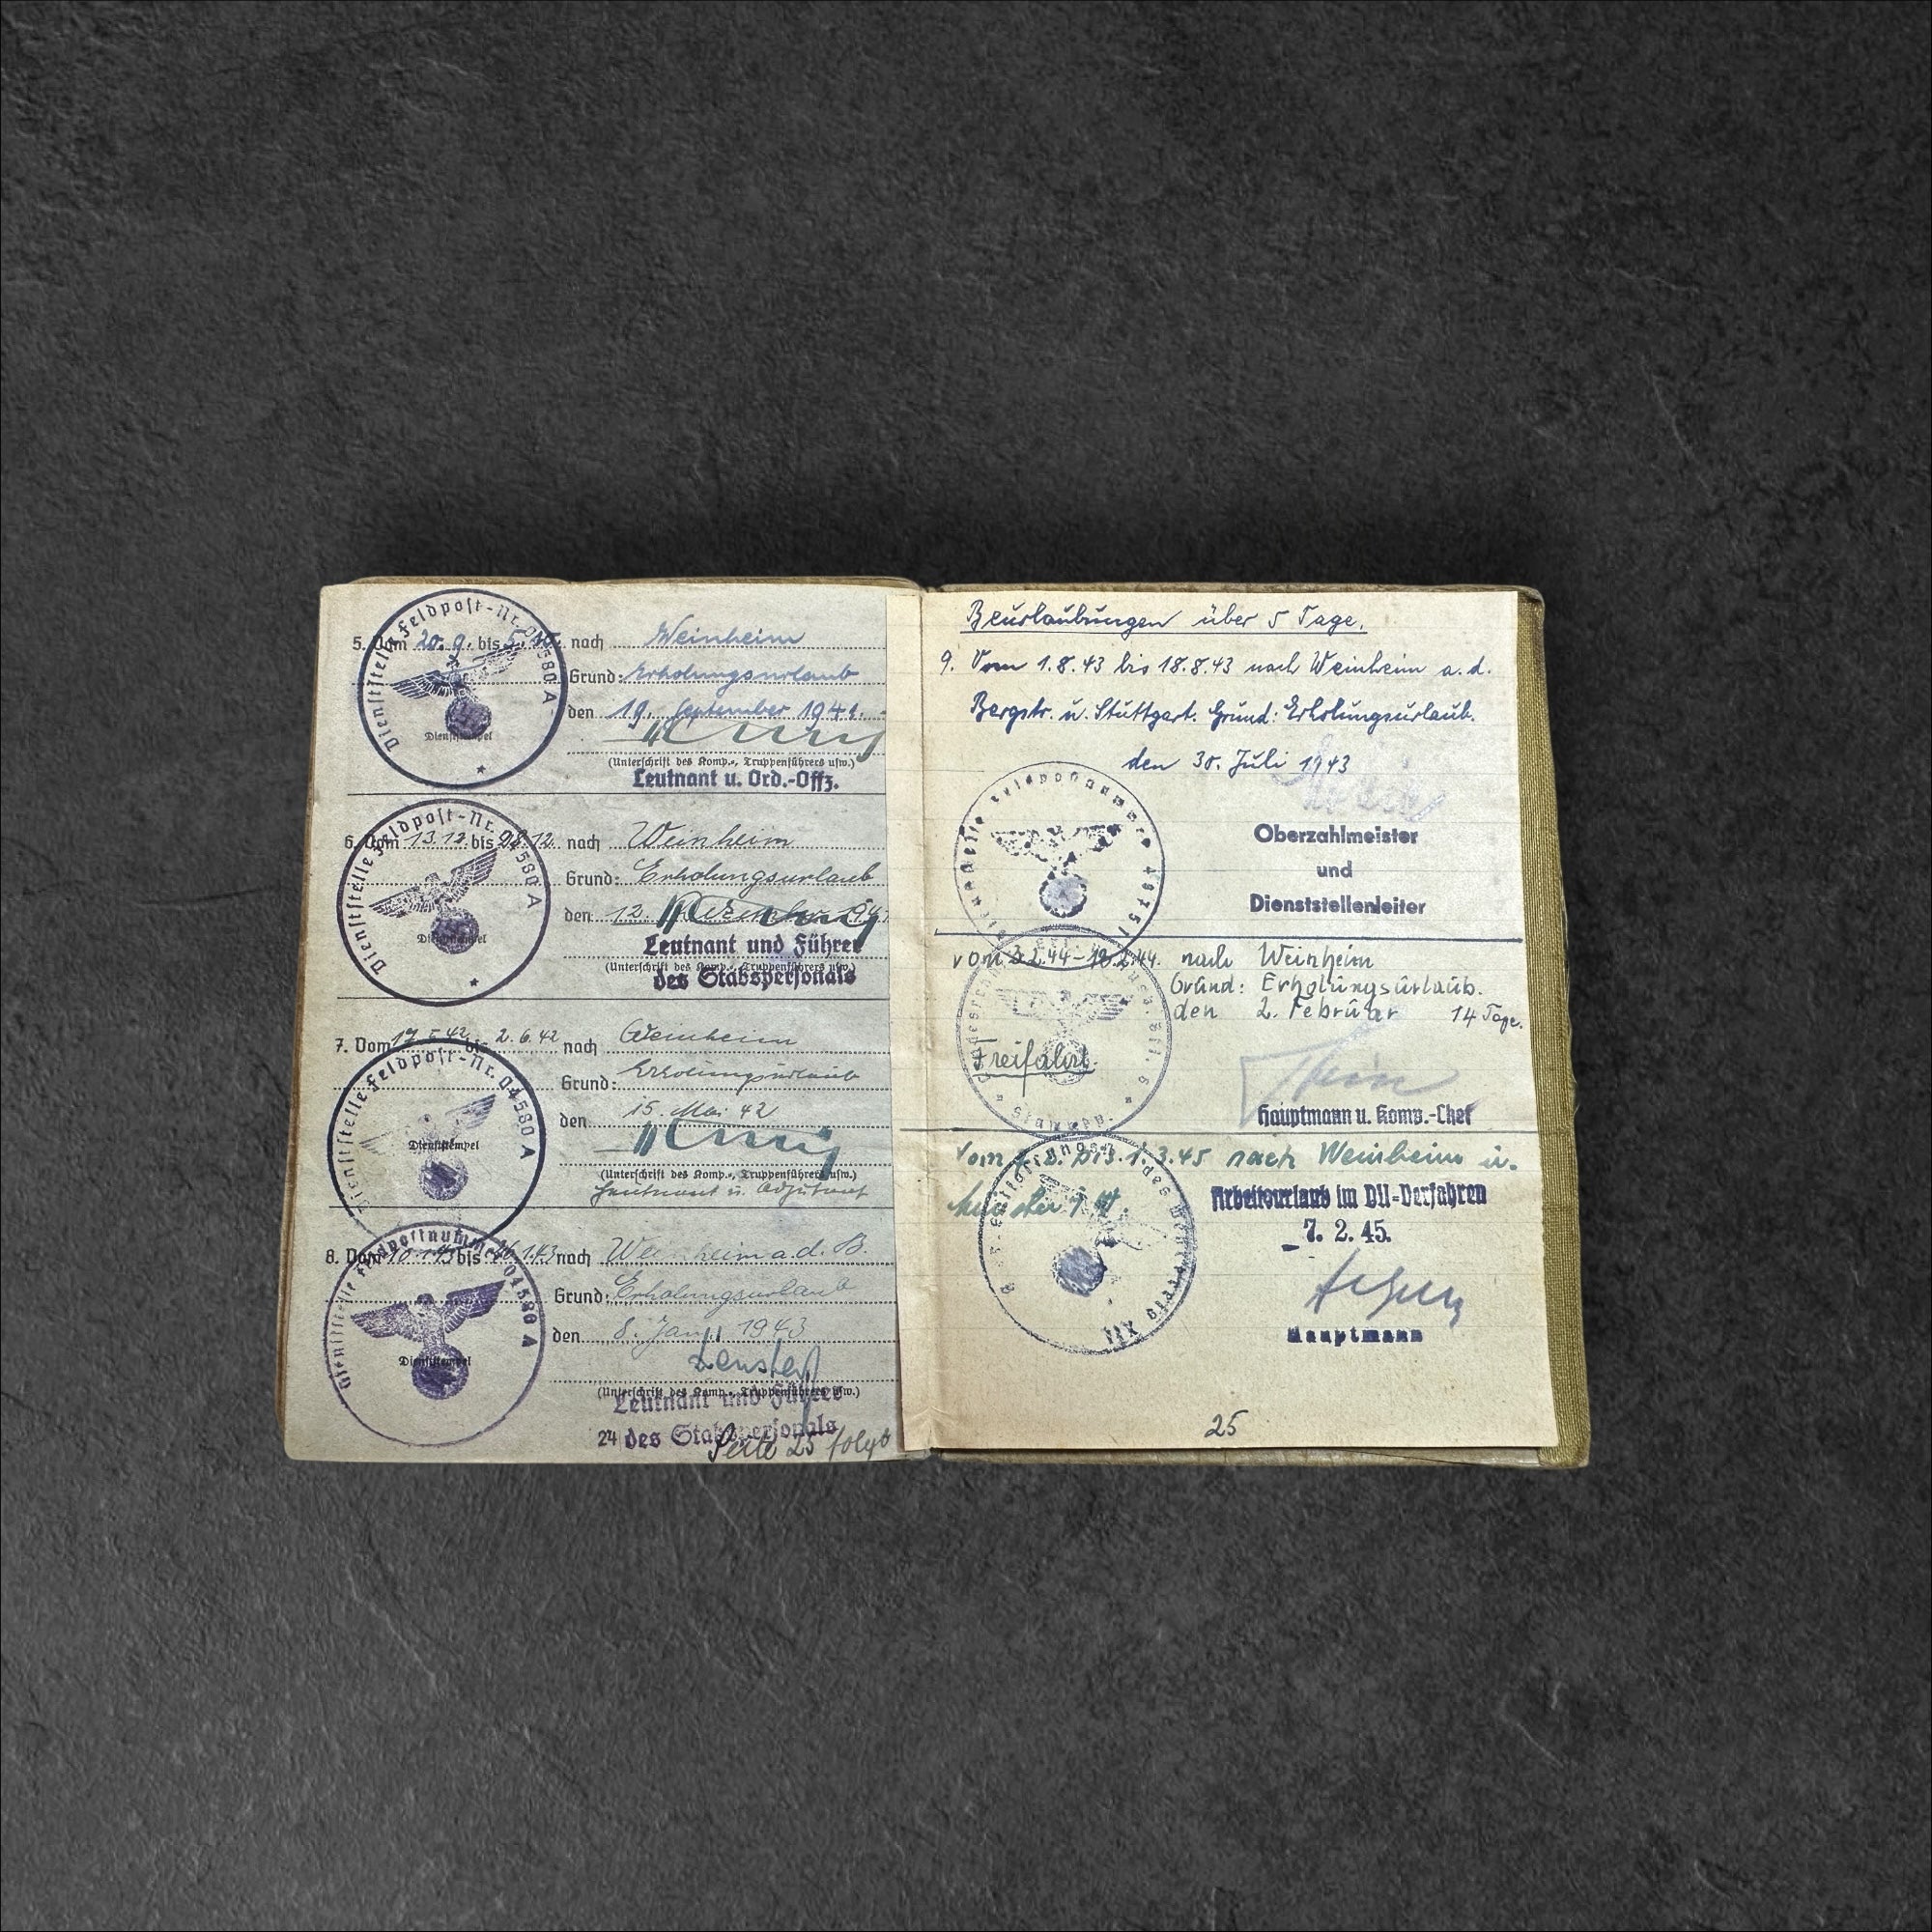 Dienststelle Feldpost-Nr. 04580 A
5. Vom 20.9. bis 5. nach Weinheim
Grund: Erholungsurlaub
den 19. September 1941.
Dienststempel
(Unterschrift des Komp.-, Truppenführers usw.)
Leutnant u. Ord.-Offz.
Dienststelle Feldpost-Nr. 04580 A
6. Vom 13.12. bis 12. nach Weinheim
Grund: Erholungsurlaub
den 12. Dezember 1941
Dienststempel
Leutnant und Führer
(Unterschrift des Komp.-, Truppenführers usw.)
des Stabspersonals
7. Vom 17.5.42 bis 2.6.42 nach Weinheim
Dienststelle Feldpost-Nr. 04580 A
Grund: Erholungsurlaub
den 15. Mai 42
Dienststempel
(Unterschrift des Komp.-, Truppenführers usw.)
Leutnant u. Adjutant
8. Vom 10.1.43 bis 1.43 nach Weinheim a.d.B.
Dienststelle Feldpostnummer 04580 A
Grund: Erholungsurlaub
den 8. Jan. 1943
Dienststempel
(Unterschrift des Komp.-, Truppenführers usw.)
Leutnant und Führer
24 des Stabspersonals
Seite 25 folgt
Beurlaubungen über 5 Tage.
9. Vom 1.8.43 bis 18.8.43 nach Weinheim a.d.
Bergstr. u. Stuttgart. Grund: Erholungsurlaub.
den 30. Juli 1943
Oberzahlmeister
und
Dienststellenleiter
vom 2.44 - 2.44. nach Weinheim
Grund: Erholungsurlaub.
den 2. Februar 14 Tage.
Freifahrt
Hauptmann u. Komp.-Chef
Vom bis 1.3.45 nach Weinheim u.
Arbeitsurlaub im DU-Verfahren
7. 2. 45.
des Wehrkreis XII
Hauptmann
25